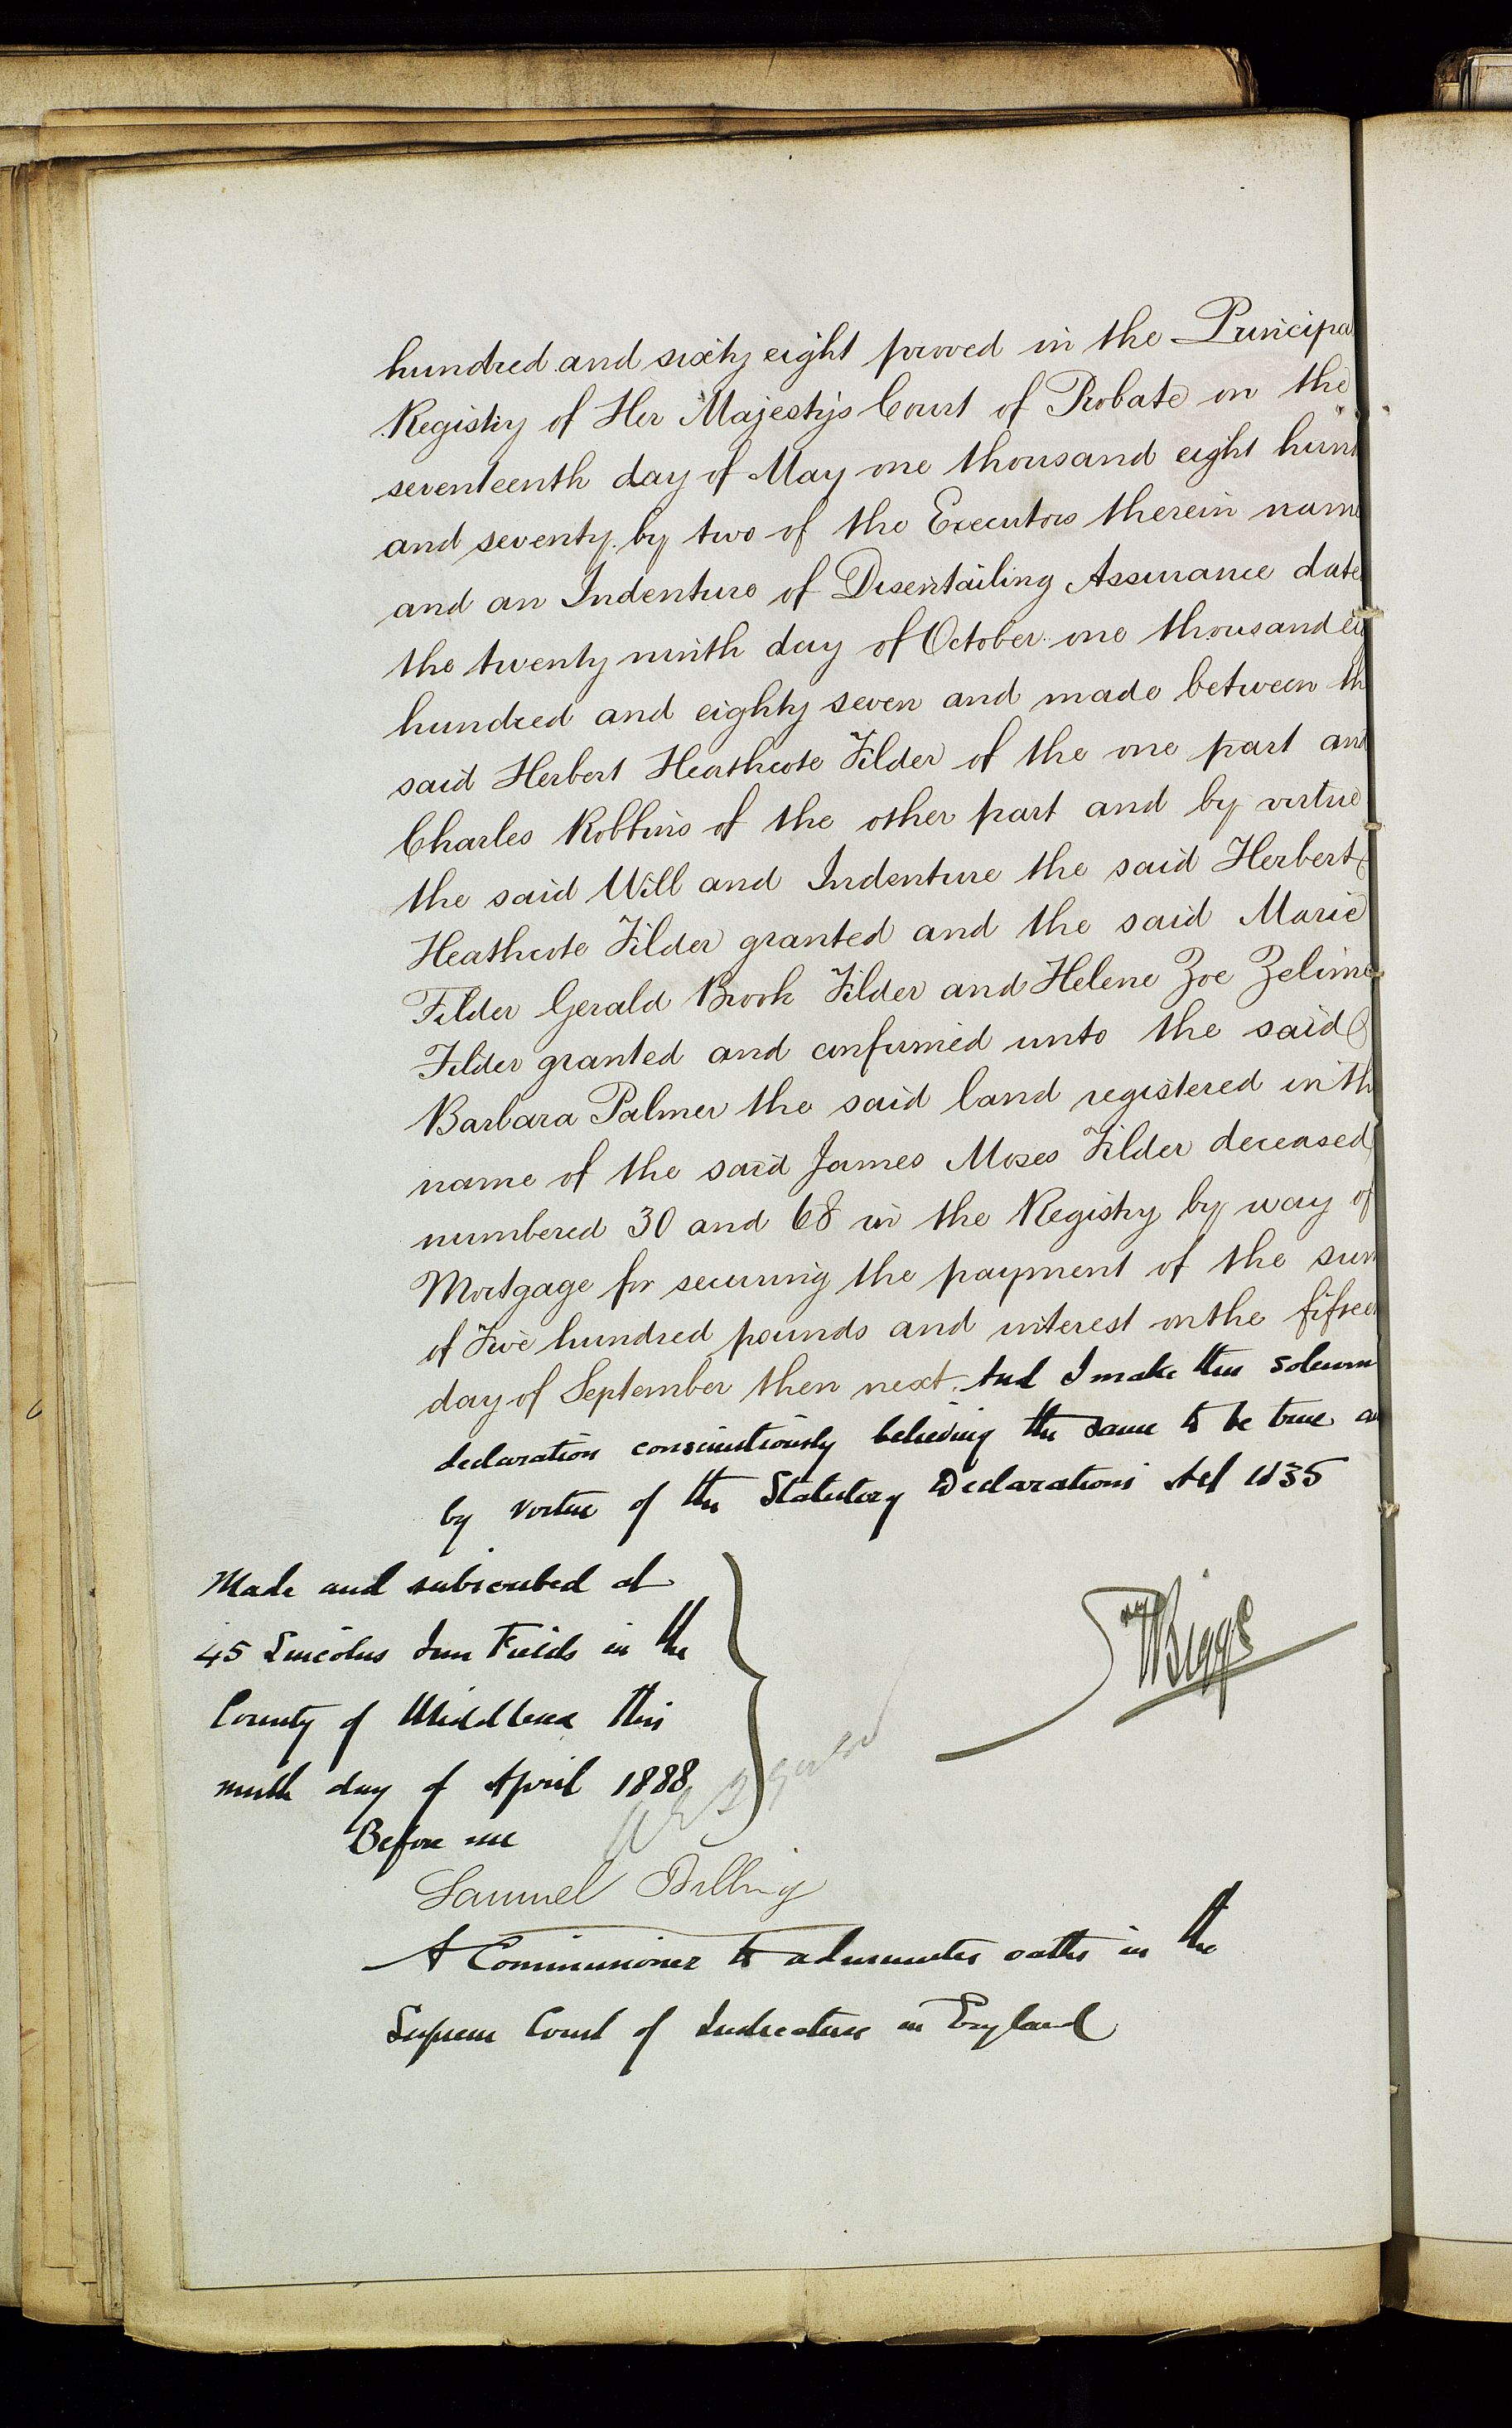 hundred and sixty eight proved in the Principa
Registry of Her Majestys Court of Probate on the
seventeenth day of May one thousand eight hund
and seventy by two of the Executors therein name
and an Indenture of Disentailing Assurance date
the twenty ninth day of October one thousand eig
hundred and eighty seven and made between th
said Herbert Heathcote Filder of the one part and
Charles Robbins of the other part and by virtue
the said Will and Indenture the said Herbert
Heathcote Filder granted and the said Marie
Filder Gerald Brook Filder and Helene Zoe Zelime
Filder granted and confirmed unto the said
Barbara Palmer the said land registered in th
name of the said James Moses Filder deceased
numbered 30 and 68 in the Registry by way of
Mortgage for securing the payment of the sum
of Five hundred pounds and interest on the fifteen
day of September then next. And I make this solemn
declaration conscientiously believing the same to be true a
by virtue of the Statutory Declarations Act 1835
Made and subscribed at
45 Lincolns Inn Fields in the
County of Middlesex this
ninth day of April 1888
Biggs
Before me
Samuel Billing
A Commissioner to administer oaths in the
Supreme Court of Judicature in England